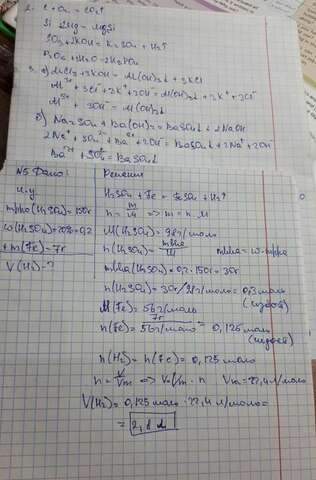 2. C + O₂ = CO₂↑
Si 2Mg = Mg₂Si
SO₃ + 2KOH = K₂SO₄ + H₂↑
P₂O₅ + H₂O = 2H₃PO₄
3. а) MCl₃ + 3KOH = M(OH)₃↓ + 3KCl
M³⁺ + 3Cl⁻ + 3K⁺ + 3OH⁻ = M(OH)₃↓ + 3K⁺ + 3Cl⁻
M³⁺ + 3OH⁻ = M(OH)₃↓
б) Na₂SO₄ + Ba(OH)₂ = BaSO₄↓ + 2NaOH
2Na⁺ + SO₄²⁻ + Ba²⁺ + 2OH⁻ = BaSO₄↓ + 2Na⁺ + 2OH⁻
Ba²⁺ + SO₄²⁻ = BaSO₄↓
№5 Дано:
н.у.
mр-ра(H₂SO₄) = 150г
ω(H₂SO₄) = 20% = 0,2
m(Fe) = 7г
V(H₂) - ?
Решение
H₂SO₄ + Fe = FeSO₄ + H₂↑
n = m/M => m = n·M
M(H₂SO₄) = 98г/моль
n(H₂SO₄) = mв-ва/M mв-ва = ω·mр-ра
mв-ва(H₂SO₄) = 0,2·150г = 30г
n(H₂SO₄) = 30г/98г/моль = 0,3 моль
M(Fe) = 56г/моль
n(Fe) = 7г/56г/моль = 0,125 моль
n(H₂) = n(Fe) = 0,125 моль
n = V/Vm <=> V = Vm·n Vm = 22,4 л/моль
V(H₂) = 0,125 моль · 22,4 л/моль =
= 2,8 л.